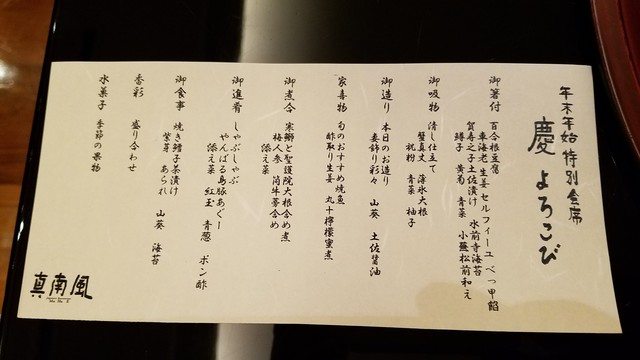 年末年始 特別会席
慶 よろこび
御箸付 百合根豆腐
車海老 生姜 セルフィーユ べっ甲餡
数寿之子土佐漬け 水前寺海苔
鱘子 黄菊 青菜 小蕪松前和え
御吸物 清し仕立て
蟹真丈 薄氷大根
祝粉 青菜 柚子
御造り 本日のお造り
妻飾り彩々 山葵 土佐醤油
家喜物 旬のおすすめ焼魚
酢取り生姜 丸十檸檬蜜煮
御煮合 寒鰤と聖護院大根含め煮
梅人参 筒牛蒡含め
添え菜
御進肴 しゃぶしゃぶ
やんばる島豚あぐー
添え菜 紅玉 青葱 ポン酢
御食事 焼き鱈子茶漬け
紫芽 あられ 山葵 海苔
香彩 盛り合わせ
水菓子 季節の果物
真南風